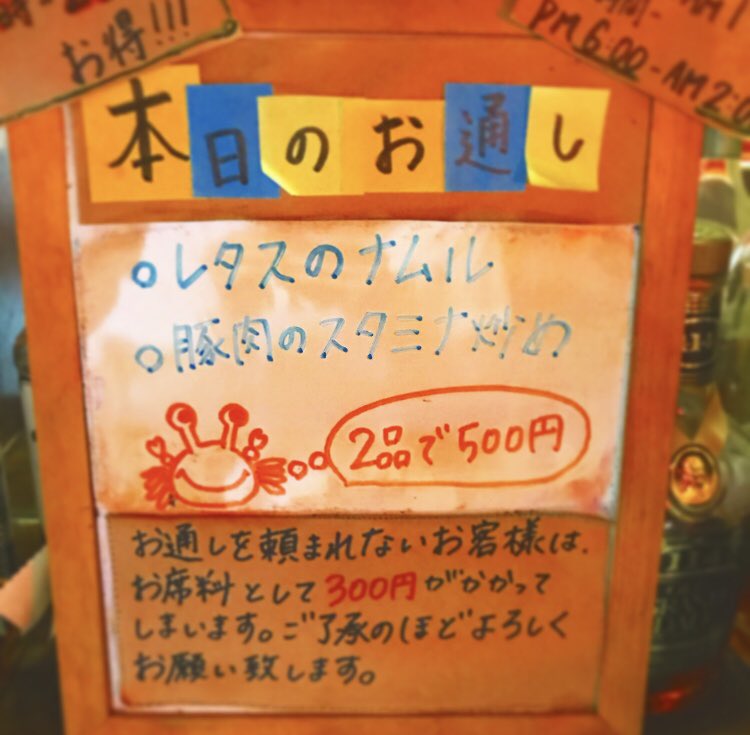 お得!!!
PM6:00-AM2:0
本日のお通し
○レタスのナムル
○豚肉のスタミナ炒め
2品で500円
お通しを頼まれないお客様は、
お席料として300円がかかって
しまいます。ご了承のほどよろしく
お願い致します。